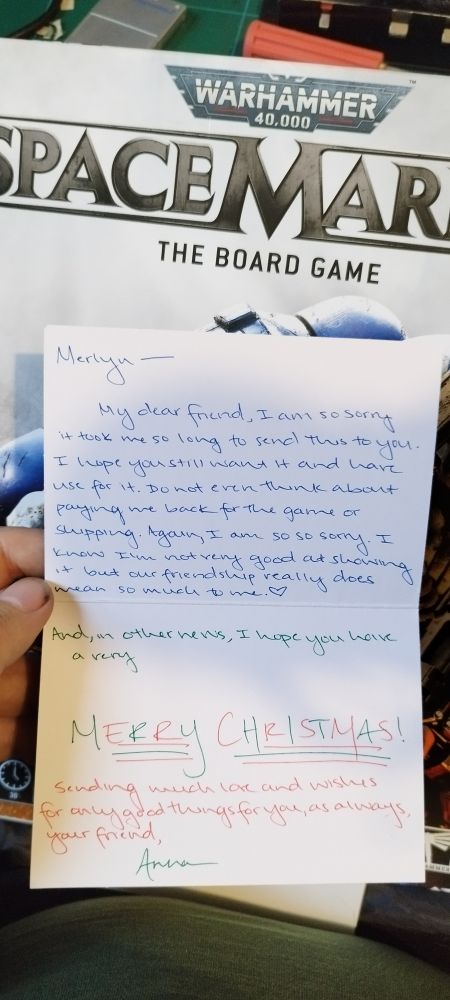 WARHAMMER™
40,000
SPACE MAR
THE BOARD GAME
Merlyn —
My dear friend, I am so sorry
it took me so long to send this to you.
I hope you still want it and have
use for it. Do not even think about
paying me back for the game or
shipping. Again, I am so so sorry. I
know I'm not very good at showing
it but our friendship really does
mean so much to me. ♡
And, in other news, I hope you have
a very
MERRY CHRISTMAS!
Sending much love and wishes
for only good things for you, as always,
your friend,
Anna